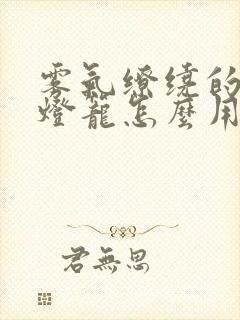 雾氣繚繞的
燈籠怎麼用
君無思